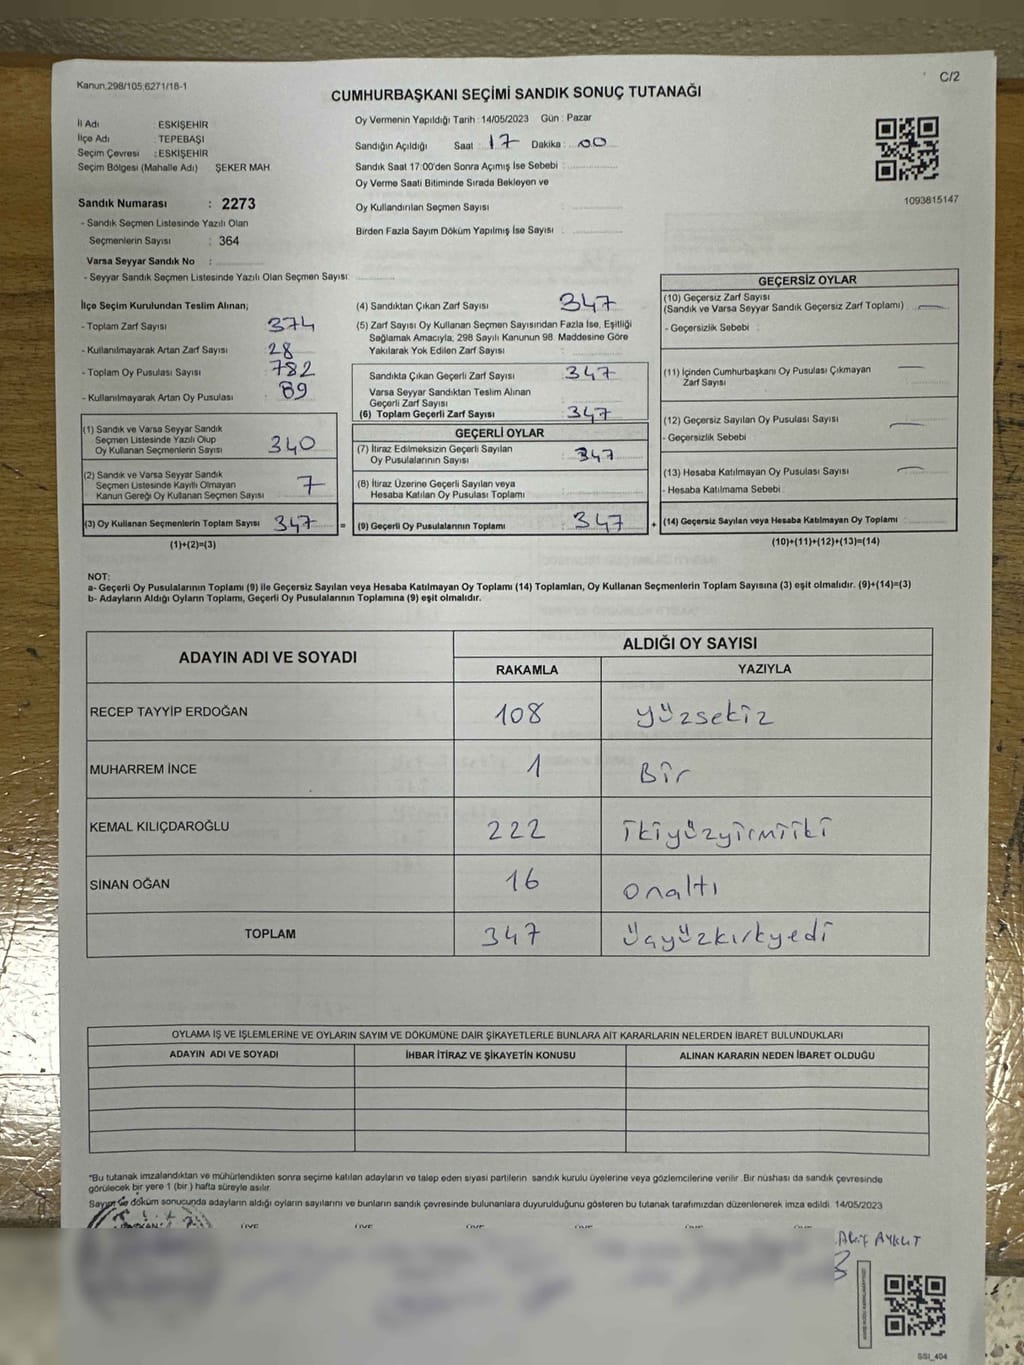 Kanun.298/105;6271/18-1
C/2
CUMHURBAŞKANI SEÇİMİ SANDIK SONUÇ TUTANAĞI
İl Adı : ESKİŞEHİR
İlçe Adı : TEPEBAŞI
Seçim Çevresi : ESKİŞEHİR
Seçim Bölgesi (Mahalle Adı) ŞEKER MAH
Sandık Numarası : 2273
- Sandık Seçmen Listesinde Yazılı Olan
Seçmenlerin Sayısı : 364
Varsa Seyyar Sandık No :
- Seyyar Sandık Seçmen Listesinde Yazılı Olan Seçmen Sayısı:
Oy Vermenin Yapıldığı Tarih : 14/05/2023 Gün : Pazar
Sandığın Açıldığı Saat : 17 Dakika : 00
Sandık Saat 17:00'den Sonra Açımış İse Sebebi :
Oy Verme Saati Bitiminde Sırada Bekleyen ve
Oy Kullandırılan Seçmen Sayısı :
Birden Fazla Sayım Döküm Yapılmış İse Sayısı :
1093815147
İlçe Seçim Kurulundan Teslim Alınan;
- Toplam Zarf Sayısı 374
- Kullanılmayarak Artan Zarf Sayısı 28
- Toplam Oy Pusulası Sayısı 782
- Kullanılmayarak Artan Oy Pusulası 89
(1) Sandık ve Varsa Seyyar Sandık
Seçmen Listesinde Yazılı Olup
Oy Kullanan Seçmenlerin Sayısı 340
(2) Sandık ve Varsa Seyyar Sandık
Seçmen Listesinde Kayıtlı Olmayan
Kanun Gereği Oy Kullanan Seçmen Sayısı 7
(3) Oy Kullanan Seçmenlerin Toplam Sayısı 347 =
(1)+(2)=(3)
(4) Sandıktan Çıkan Zarf Sayısı 347
(5) Zarf Sayısı Oy Kullanan Seçmen Sayısından Fazla İse, Eşitliği
Sağlamak Amacıyla; 298 Sayılı Kanunun 98. Maddesine Göre
Yakılarak Yok Edilen Zarf Sayısı :
Sandıkta Çıkan Geçerli Zarf Sayısı : 347
Varsa Seyyar Sandıktan Teslim Alınan
Geçerli Zarf Sayısı :
(6) Toplam Geçerli Zarf Sayısı : 347
GEÇERLİ OYLAR
(7) İtiraz Edilmeksizin Geçerli Sayılan
Oy Pusulalarının Sayısı : 347
(8) İtiraz Üzerine Geçerli Sayılan veya
Hesaba Katılan Oy Pusulası Toplamı :
(9) Geçerli Oy Pusulalarının Toplamı : 347 +
GEÇERSİZ OYLAR
(10) Geçersiz Zarf Sayısı
(Sandık ve Varsa Seyyar Sandık Geçersiz Zarf Toplamı) : —
- Geçersizlik Sebebi :
(11) İçinden Cumhurbaşkanı Oy Pusulası Çıkmayan
Zarf Sayısı : —
(12) Geçersiz Sayılan Oy Pusulası Sayısı : —
- Geçersizlik Sebebi :
(13) Hesaba Katılmayan Oy Pusulası Sayısı : —
- Hesaba Katılmama Sebebi :
(14) Geçersiz Sayılan veya Hesaba Katılmayan Oy Toplamı :
(10)+(11)+(12)+(13)=(14)
NOT:
a- Geçerli Oy Pusulalarının Toplamı (9) ile Geçersiz Sayılan veya Hesaba Katılmayan Oy Toplamı (14) Toplamları, Oy Kullanan Seçmenlerin Toplam Sayısına (3) eşit olmalıdır. (9)+(14)=(3)
b- Adayların Aldığı Oyların Toplamı, Geçerli Oy Pusulalarının Toplamına (9) eşit olmalıdır.
ADAYIN ADI VE SOYADI ALDIĞI OY SAYISI
RAKAMLA YAZIYLA
RECEP TAYYİP ERDOĞAN 108 yüzsekiz
MUHARREM İNCE 1 Bir
KEMAL KILIÇDAROĞLU 222 ikiyüzyirmiiki
SİNAN OĞAN 16 onaltı
TOPLAM 347 üçyüzkırkyedi
OYLAMA İŞ VE İŞLEMLERİNE VE OYLARIN SAYIM VE DÖKÜMÜNE DAİR ŞİKAYETLERLE BUNLARA AİT KARARLARIN NELERDEN İBARET BULUNDUKLARI
ADAYIN ADI VE SOYADI İHBAR İTİRAZ VE ŞİKAYETİN KONUSU ALINAN KARARIN NEDEN İBARET OLDUĞU
*Bu tutanak imzalandıktan ve mühürlendikten sonra seçime katılan adayların ve talep eden siyasi partilerin sandık kurulu üyelerine veya gözlemcilerine verilir. Bir nüshası da sandık çevresinde
görülecek bir yere 1 (bir ) hafta süreyle asılır.
Sayım ve döküm sonucunda adayların aldığı oyların sayılarını ve bunların sandık çevresinde bulunanlara duyurulduğunu gösteren bu tutanak tarafımızdan düzenlenerek imza edildi. 14/05/2023
BAŞKAN ÜYE ÜYE ÜYE ÜYE ÜYE ÜYE
Akif AYKUT
SSI_404